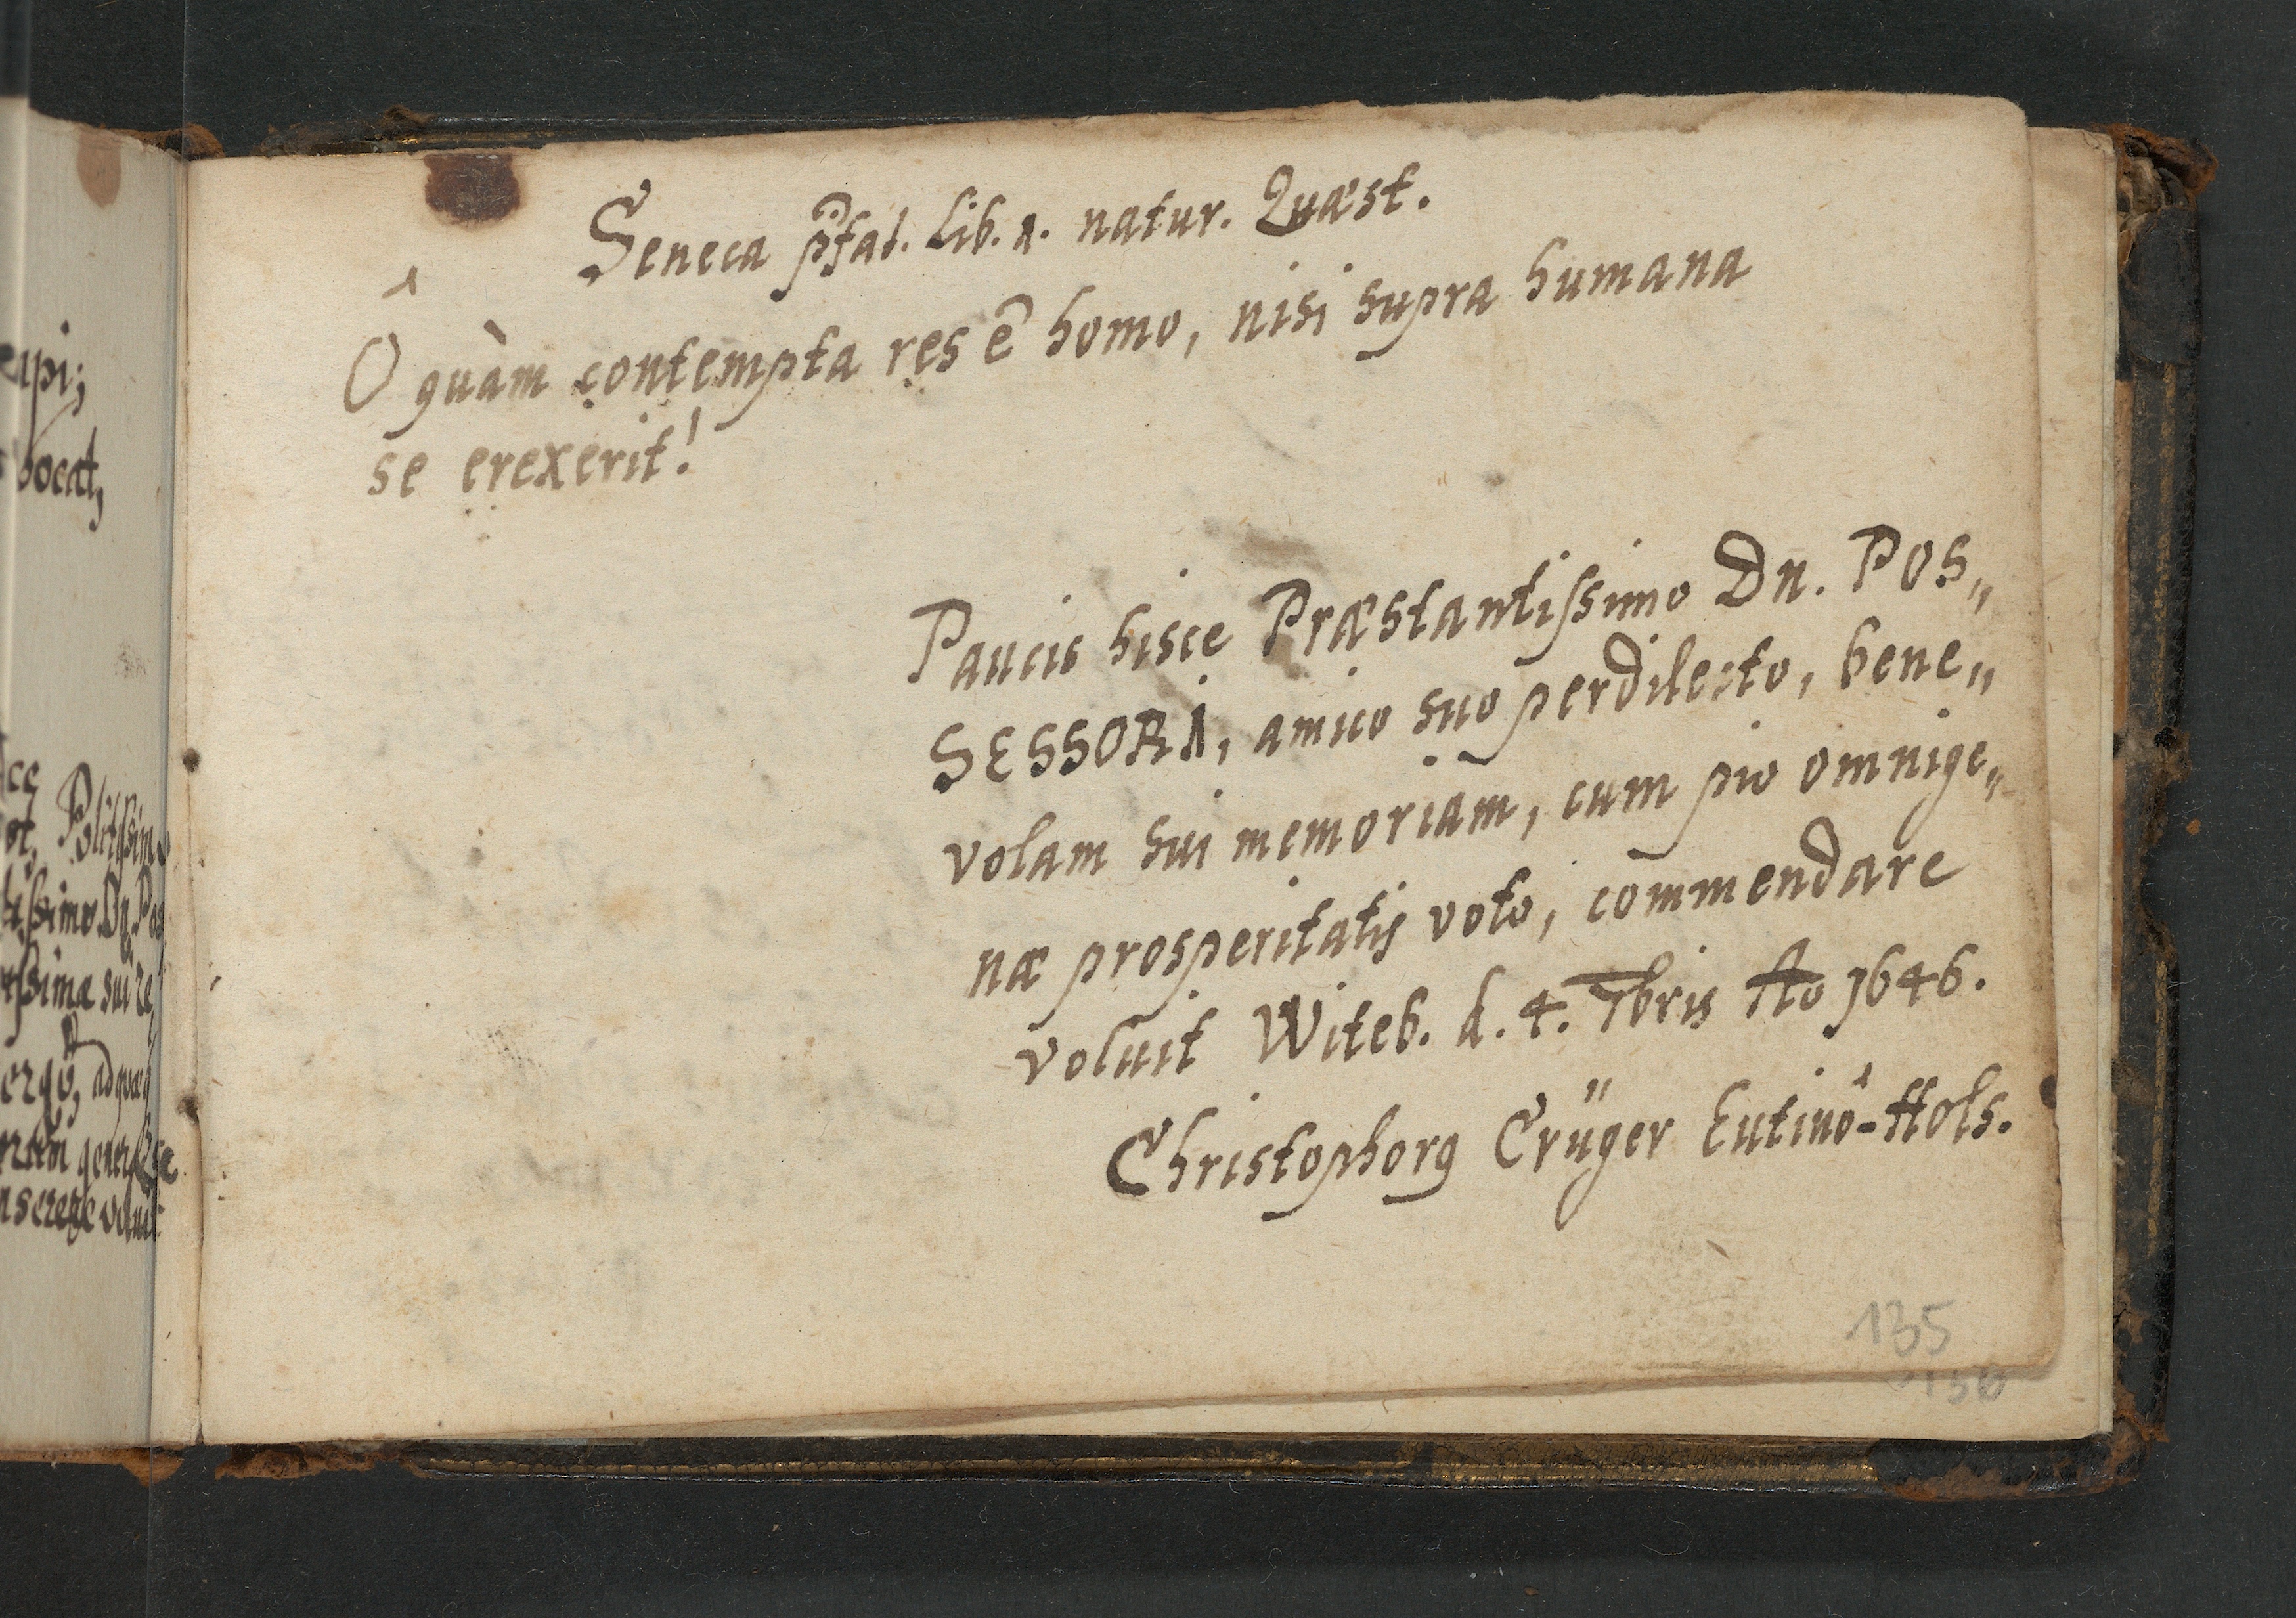 Seneca p̃fat. Lib. 1. natur. Quæst.
Ô quàm contempta res ẽ homo, nisi supra humana
se erexerit!
Paucis hisce Præstantissimo Dn. POS„
SESSORI, amico suo perdilecto, bene„
volam sui memoriam, cum pio omnige„
næ prosperitatis voto, commendare
voluit Witeb. d. 4. 7bris Ao 1646.
Christophorꝯ Crüger Eutinô-Hols.
135
150
eapi;
vocat,
Politissimo
tissimo Dn. Pos
issimæ sui te
ergò, adpræs
inserere voluit